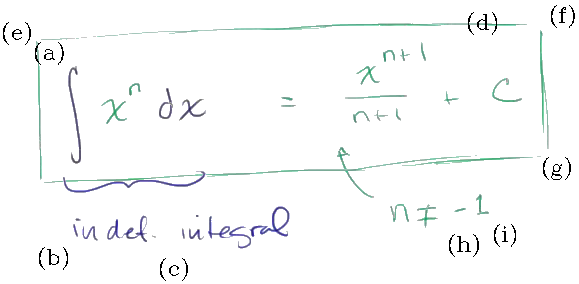 (e) (d) (f)
(a)
∫ xⁿ dx = xⁿ⁺¹/n+1 + C
(g)
indef. integral n ≠ -1
(h) (i)
(b) (c)